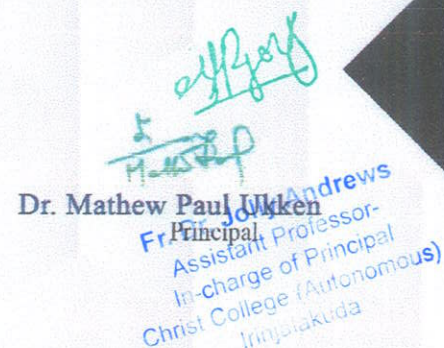 Dr. Mathew Paul Ukken
Principal
Fr. Dr. Jolly Andrews
Assistant Professor-
In-charge of Principal
Christ College (Autonomous)
Irinjalakuda